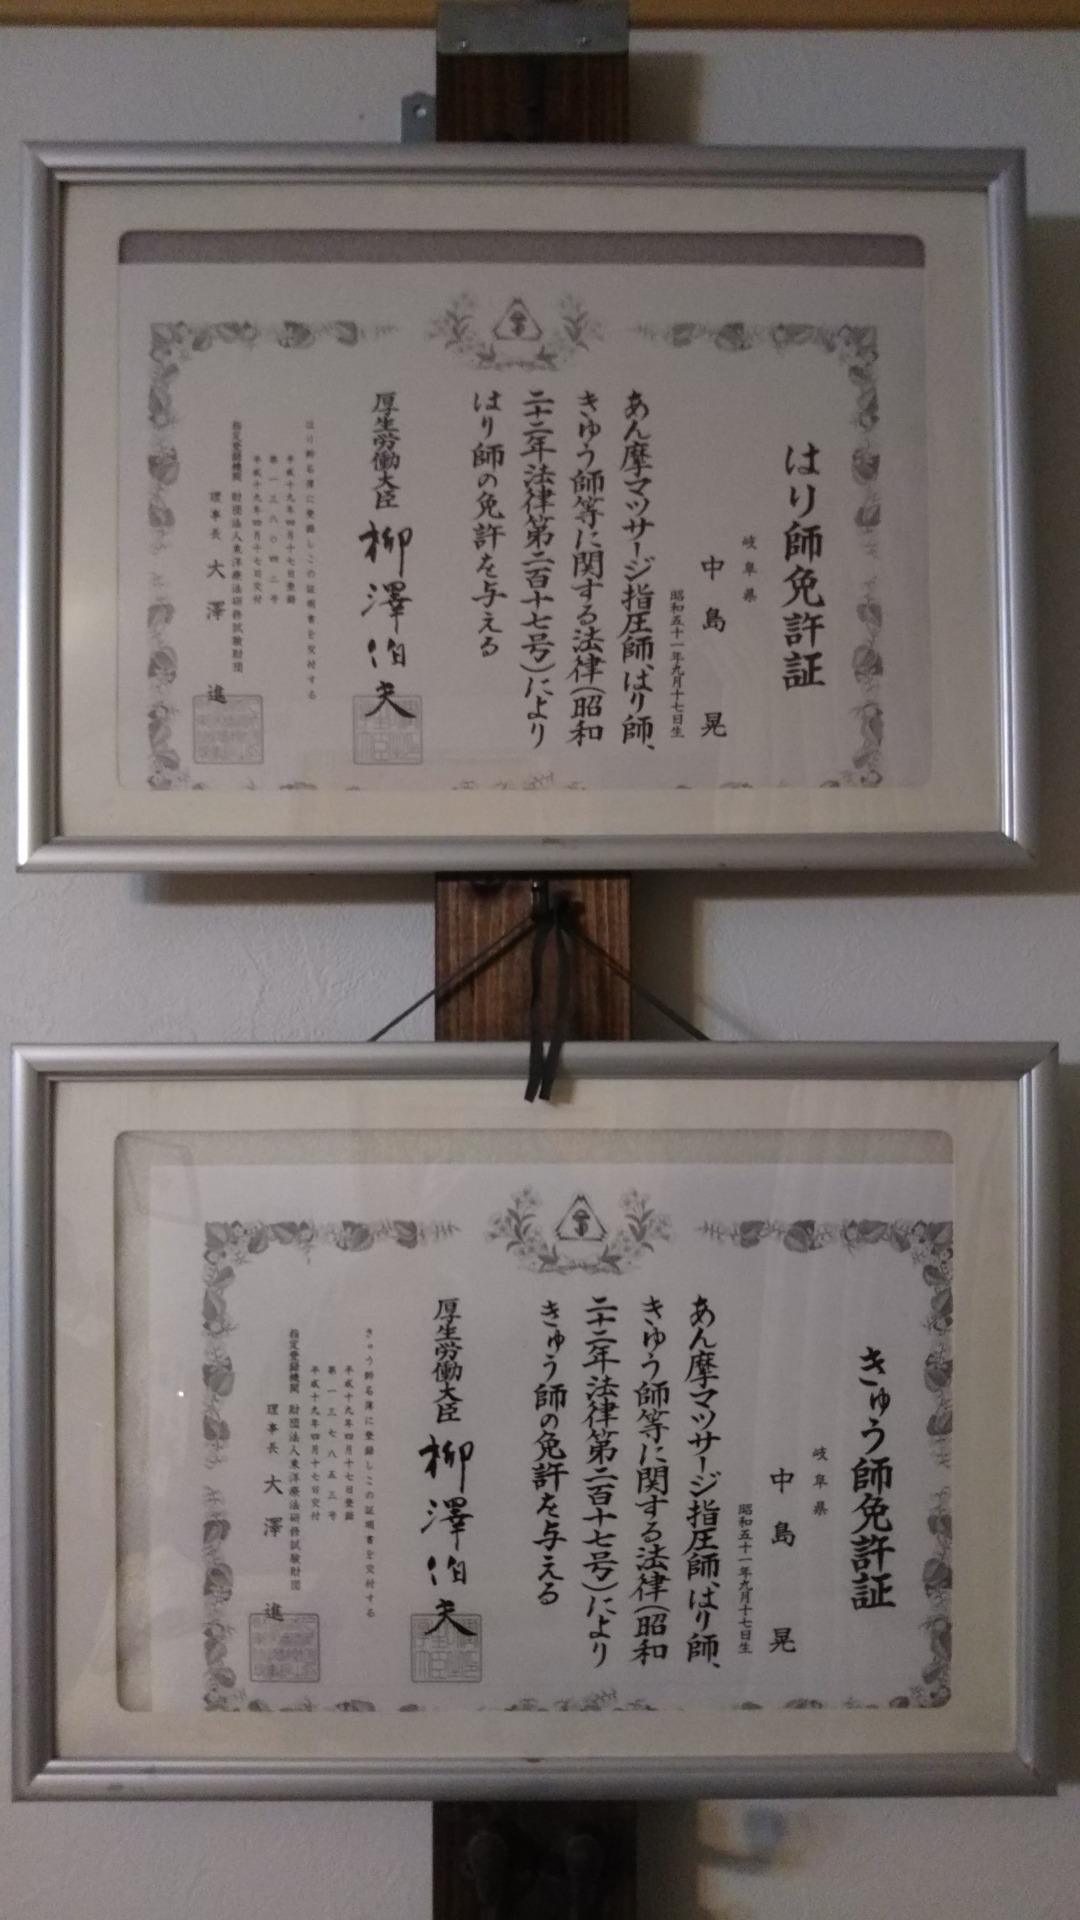 はり師免許証
岐阜県
中島 晃
昭和五十一年九月十七日生
あん摩マツサージ指圧師、はり師、
きゆう師等に関する法律（昭和
二十二年法律第二百十七号）により
はり師の免許を与える
厚生労働大臣 柳澤伯夫
はり師名簿に登録しこの証明書を交付する
平成十九年四月十七日登録
第一三八〇四二号
平成十九年四月十七日交付
指定登録機関 財団法人東洋療法研修試験財団
理事長 大澤 進
きゅう師免許証
岐阜県
中島 晃
昭和五十一年九月十七日生
あん摩マツサージ指圧師、はり師、
きゆう師等に関する法律（昭和
二十二年法律第二百十七号）により
きゅう師の免許を与える
厚生労働大臣 柳澤伯夫
きゅう師名簿に登録しこの証明書を交付する
平成十九年四月十七日登録
第一三七八五三号
平成十九年四月十七日交付
指定登録機関 財団法人東洋療法研修試験財団
理事長 大澤 進